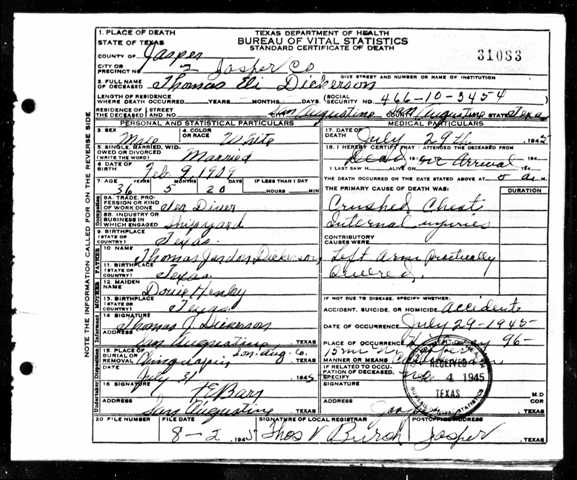 1. PLACE OF DEATH
STATE OF TEXAS
TEXAS DEPARTMENT OF HEALTH
BUREAU OF VITAL STATISTICS
STANDARD CERTIFICATE OF DEATH
31083
COUNTY OF Jasper
CITY OR PRECINCT NO. 2 Jasper Co
GIVE STREET AND NUMBER OR NAME OF INSTITUTION
2. FULL NAME OF DECEASED Thomas Eli Dickerson
LENGTH OF RESIDENCE WHERE DEATH OCCURRED YEARS MONTHS DAYS SOCIAL SECURITY NO. 466-10-5454
RESIDENCE OF THE DECEASED STREET AND NO. San Augustine San Augustine Texas
PERSONAL AND STATISTICAL PARTICULARS
3. SEX Male 4. COLOR OR RACE White
5. SINGLE, MARRIED, WIDOWED OR DIVORCED (WRITE THE WORD) Married
6. DATE OF BIRTH Feb 9 1909
7. AGE YEARS MONTHS DAYS IF LESS THAN 1 DAY
36 5 20 HOURS MIN
8A. TRADE, PROFESSION OR KIND OF WORK DONE
8B. INDUSTRY OR BUSINESS IN WHICH ENGAGED Shipyard
9. BIRTHPLACE (STATE OR COUNTRY) Texas
10. NAME Thomas Jordan Dickerson
11. BIRTHPLACE (STATE OR COUNTRY) Texas
12. MAIDEN NAME Henley
13. BIRTHPLACE (STATE OR COUNTRY) Texas
14. SIGNATURE Thomas J. Dickerson
ADDRESS San Augustine TEXAS
15. PLACE OF BURIAL OR REMOVAL San Aug. Co. TEXAS
July 31 1945
16. SIGNATURE
ADDRESS San Augustine TEXAS
MEDICAL PARTICULARS
17. DATE OF DEATH July 29th 1945
18. I HEREBY CERTIFY THAT I ATTENDED THE DECEASED FROM
Dead on arrival
I LAST SAW H ALIVE ON 194
THE DEATH OCCURRED ON THE DATE STATED ABOVE AT
THE PRIMARY CAUSE OF DEATH WAS: DURATION
Crushed Chest
Internal injuries
CONTRIBUTORY CAUSES WERE
Left Arm Practically
Severed
IF NOT DUE TO DISEASE, SPECIFY:
ACCIDENT, SUICIDE, OR HOMICIDE Accident
DATE OF OCCURRENCE July 29-1945
PLACE OF OCCURRENCE 96-
MANNER OR MEANS
IF RELATED TO OCCUPATION OF DECEASED, SPECIFY
RECEIVED
4 1945
TEXAS
BUREAU VITAL STATISTICS
SIGNATURE M.D. COR
ADDRESS TEXAS
20 FILE NUMBER FILE DATE SIGNATURE OF LOCAL REGISTRAR POSTOFFICE ADDRESS
8-2 1945 Thos V Burch Jasper TEXAS
NOTE THE INFORMATION CALLED FOR ON THE REVERSE SIDE